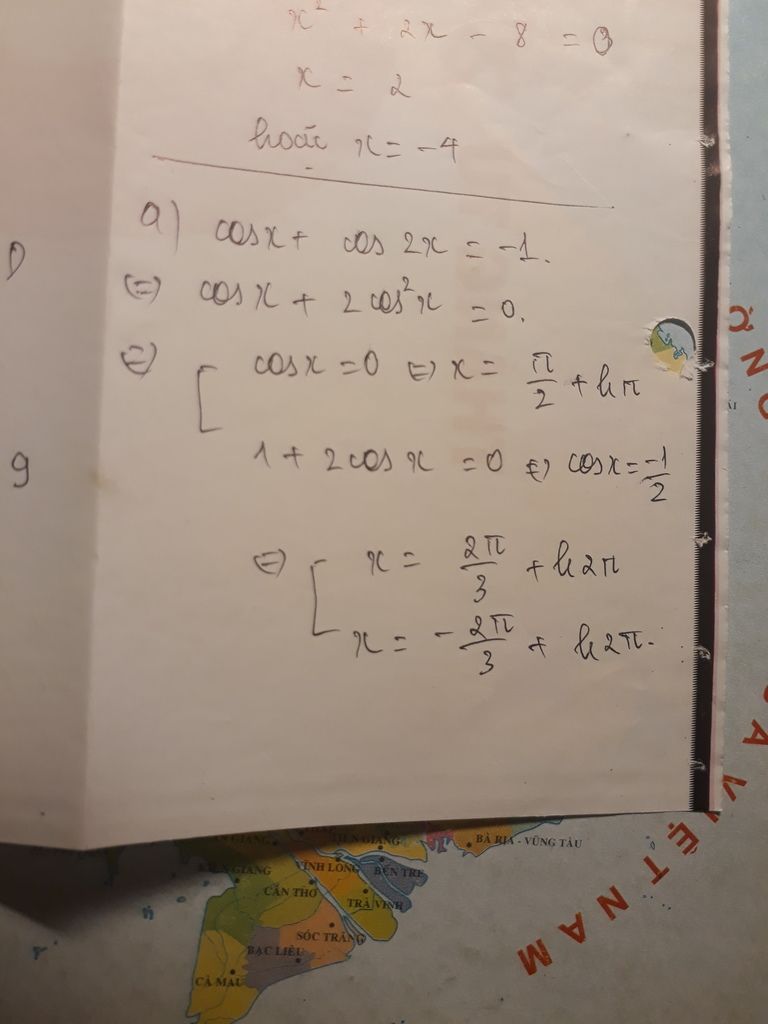 x² + 2x - 8 = 0
x = 2
hoặc x = -4
a) cosx + cos 2x = -1.
⇔ cosx + 2cos²x = 0.
⇔ [ cosx = 0 ⇔ x = π/2 + kπ
1 + 2cosx = 0 ⇔ cosx = -1/2
⇔ [ x = 2π/3 + k2π
x = -2π/3 + k2π.
9
TIỀN GIANG
BÀ RỊA - VŨNG TÀU
KIÊN GIANG
VĨNH LONG
BẾN TRE
CẦN THƠ
TRÀ VINH
SÓC TRĂNG
BẠC LIÊU
CÀ MAU
VIỆT NAM